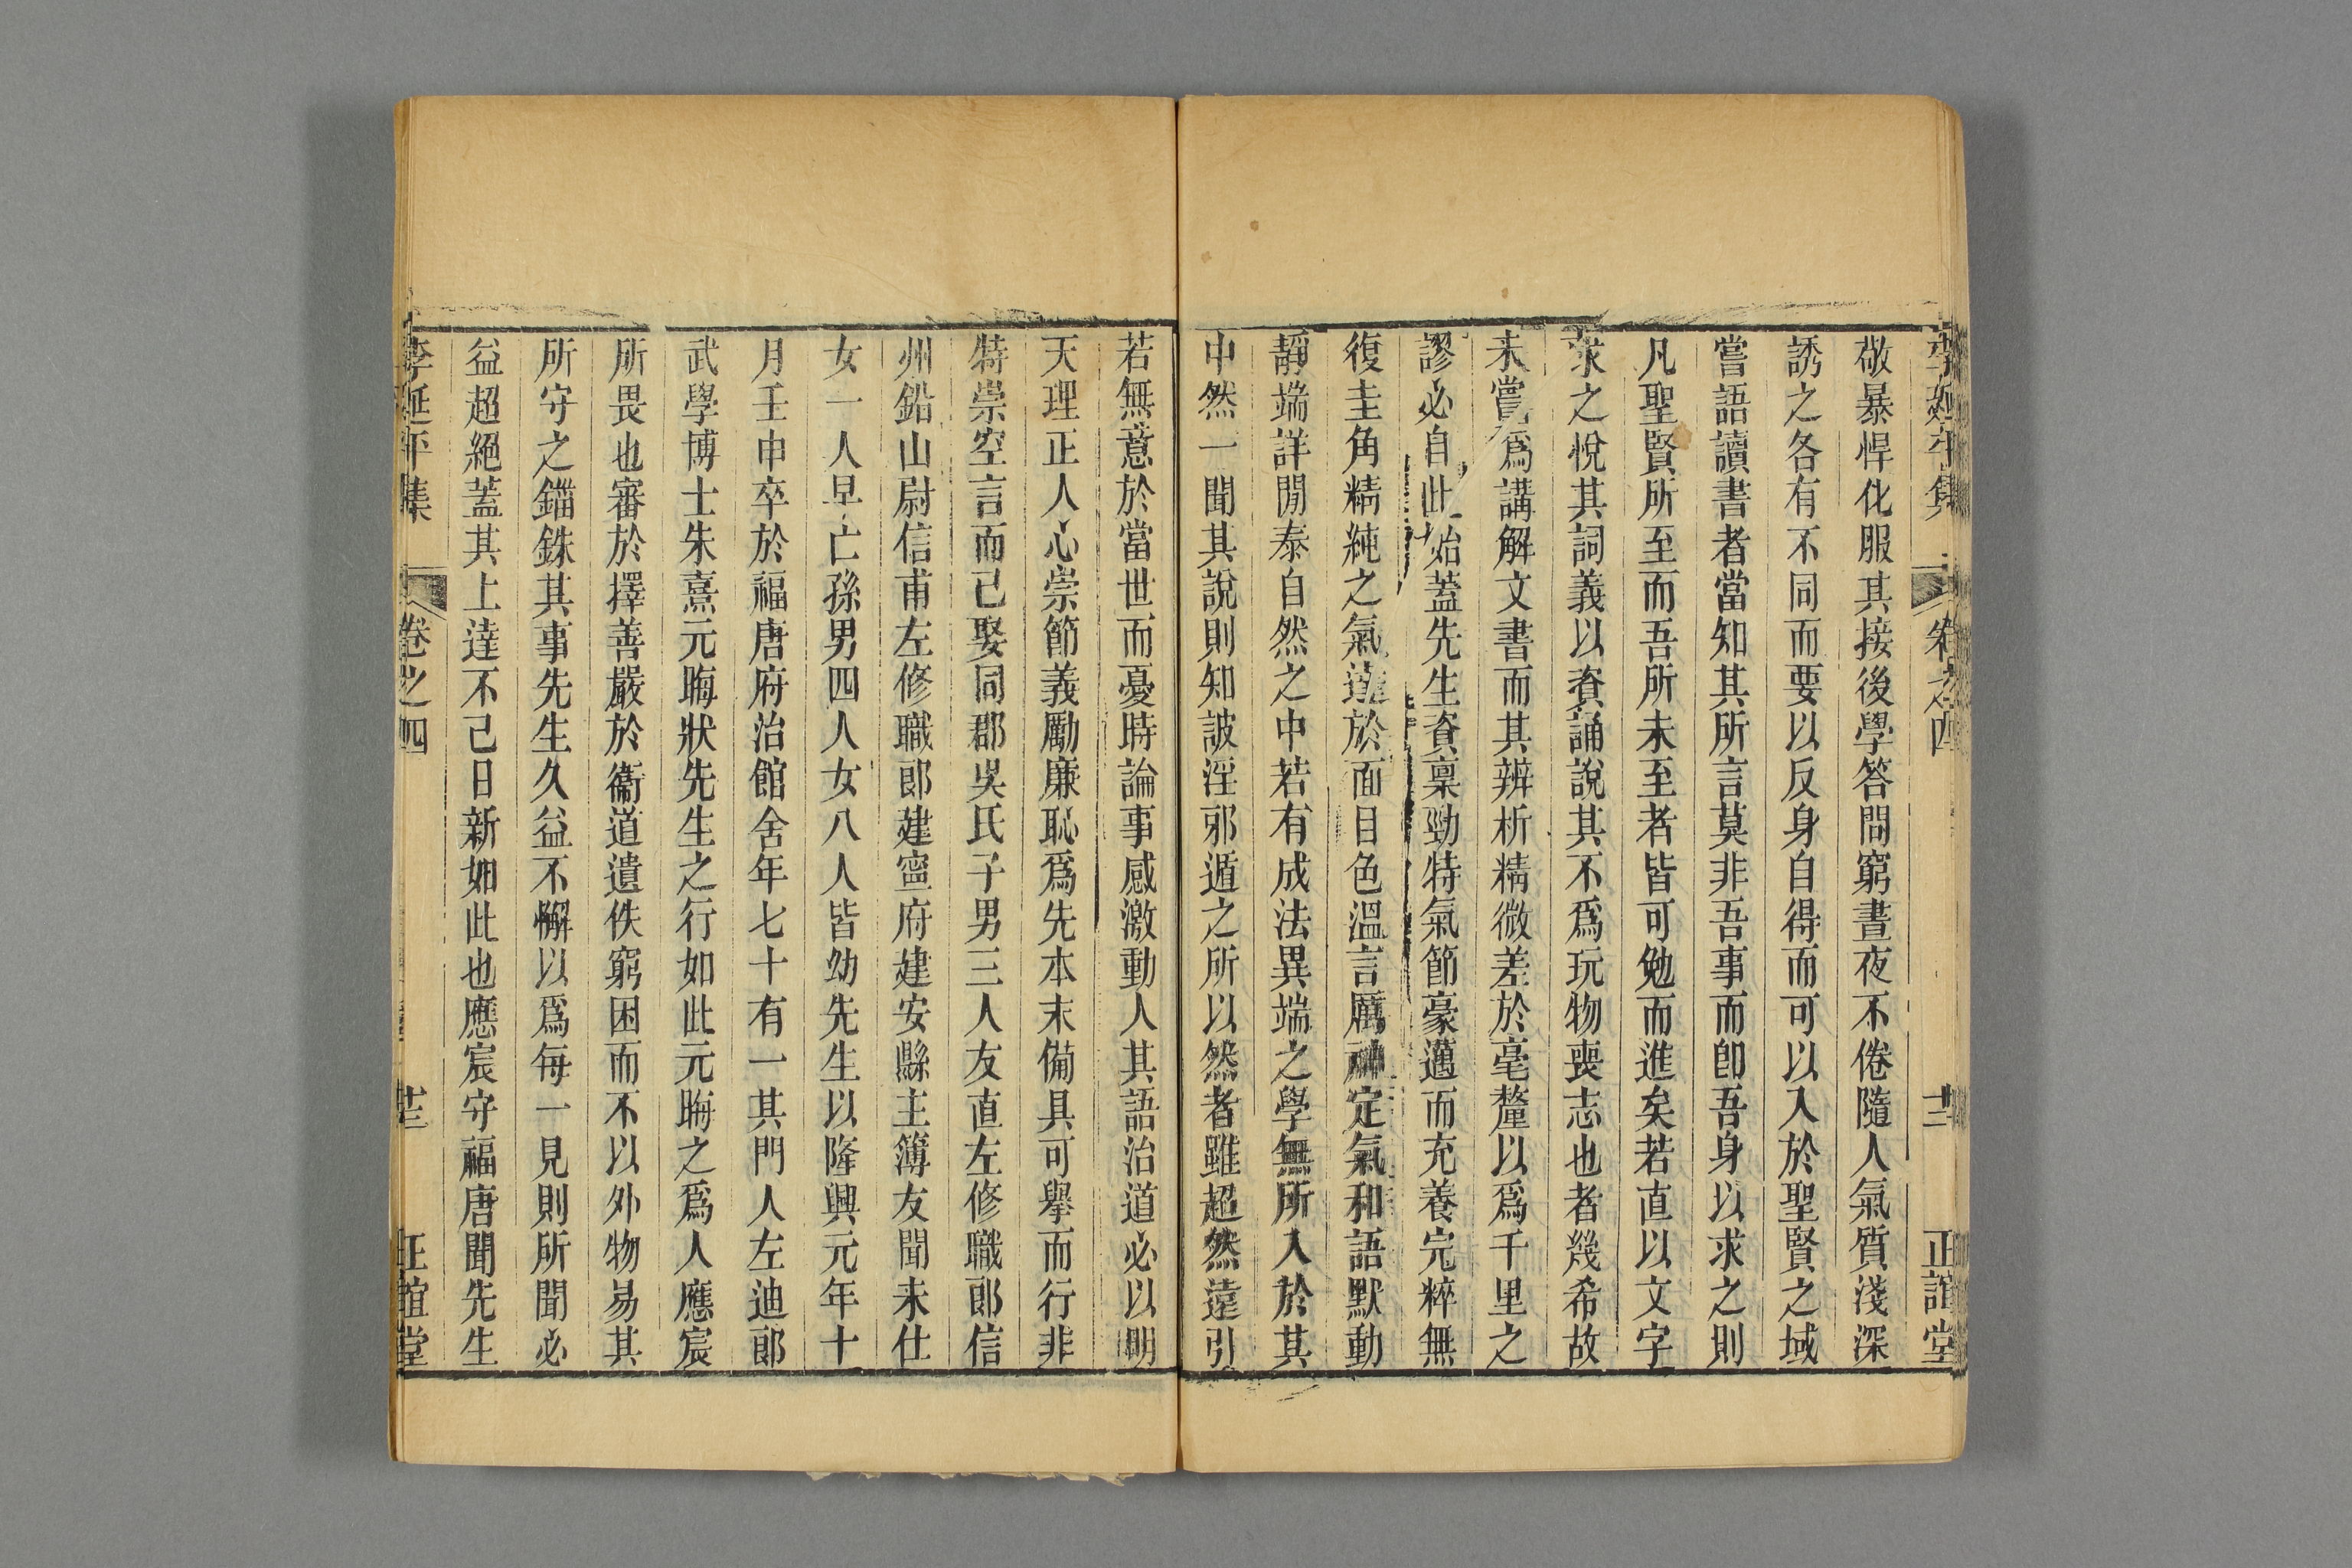 李延平集 卷之四 十二 正誼堂
敬暴悍化服其接後學答問窮晝夜不倦隨人氣質淺深
誘之各有不同而要以反身自得而可以入於聖賢之域
嘗語讀書者當知其所言莫非吾事而卽吾身以求之則
凡聖賢所至而吾所未至者皆可勉而進矣若直以文字
求之悅其詞義以資誦說其不爲玩物喪志也者幾希故
未嘗爲講解文書而其辨析精微差於毫釐以爲千里之
謬必自此始蓋先生資稟勁特氣節豪邁而充養完粹無
復圭角精純之氣達於面目色溫言厲神定氣和語默動
靜端詳閒泰自然之中若有成法異端之學無所入於其
中然一聞其說則知詖淫邪遁之所以然者雖超然遠引
若無意於當世而憂時論事感激動人其語治道必以明
天理正人心崇節義勵廉恥爲先本末備具可舉而行非
特崇空言而已娶同郡吳氏子男三人友直左修職郎信
州鉛山尉信甫左修職郎建寧府建安縣主簿友聞未仕
女一人早亡孫男四人女八人皆幼先生以隆興元年十
月壬申卒於福唐府治館舍年七十有一其門人左迪郎
武學博士朱熹元晦狀先生之行如此元晦之爲人應宸
所畏也審於擇善嚴於衞道遺佚窮困而不以外物易其
所守之錙銖其事先生久益不懈以爲每一見則所聞必
益超絕蓋其上達不已日新如此也應宸守福唐聞先生
李延平集 卷之四 十二 正誼堂